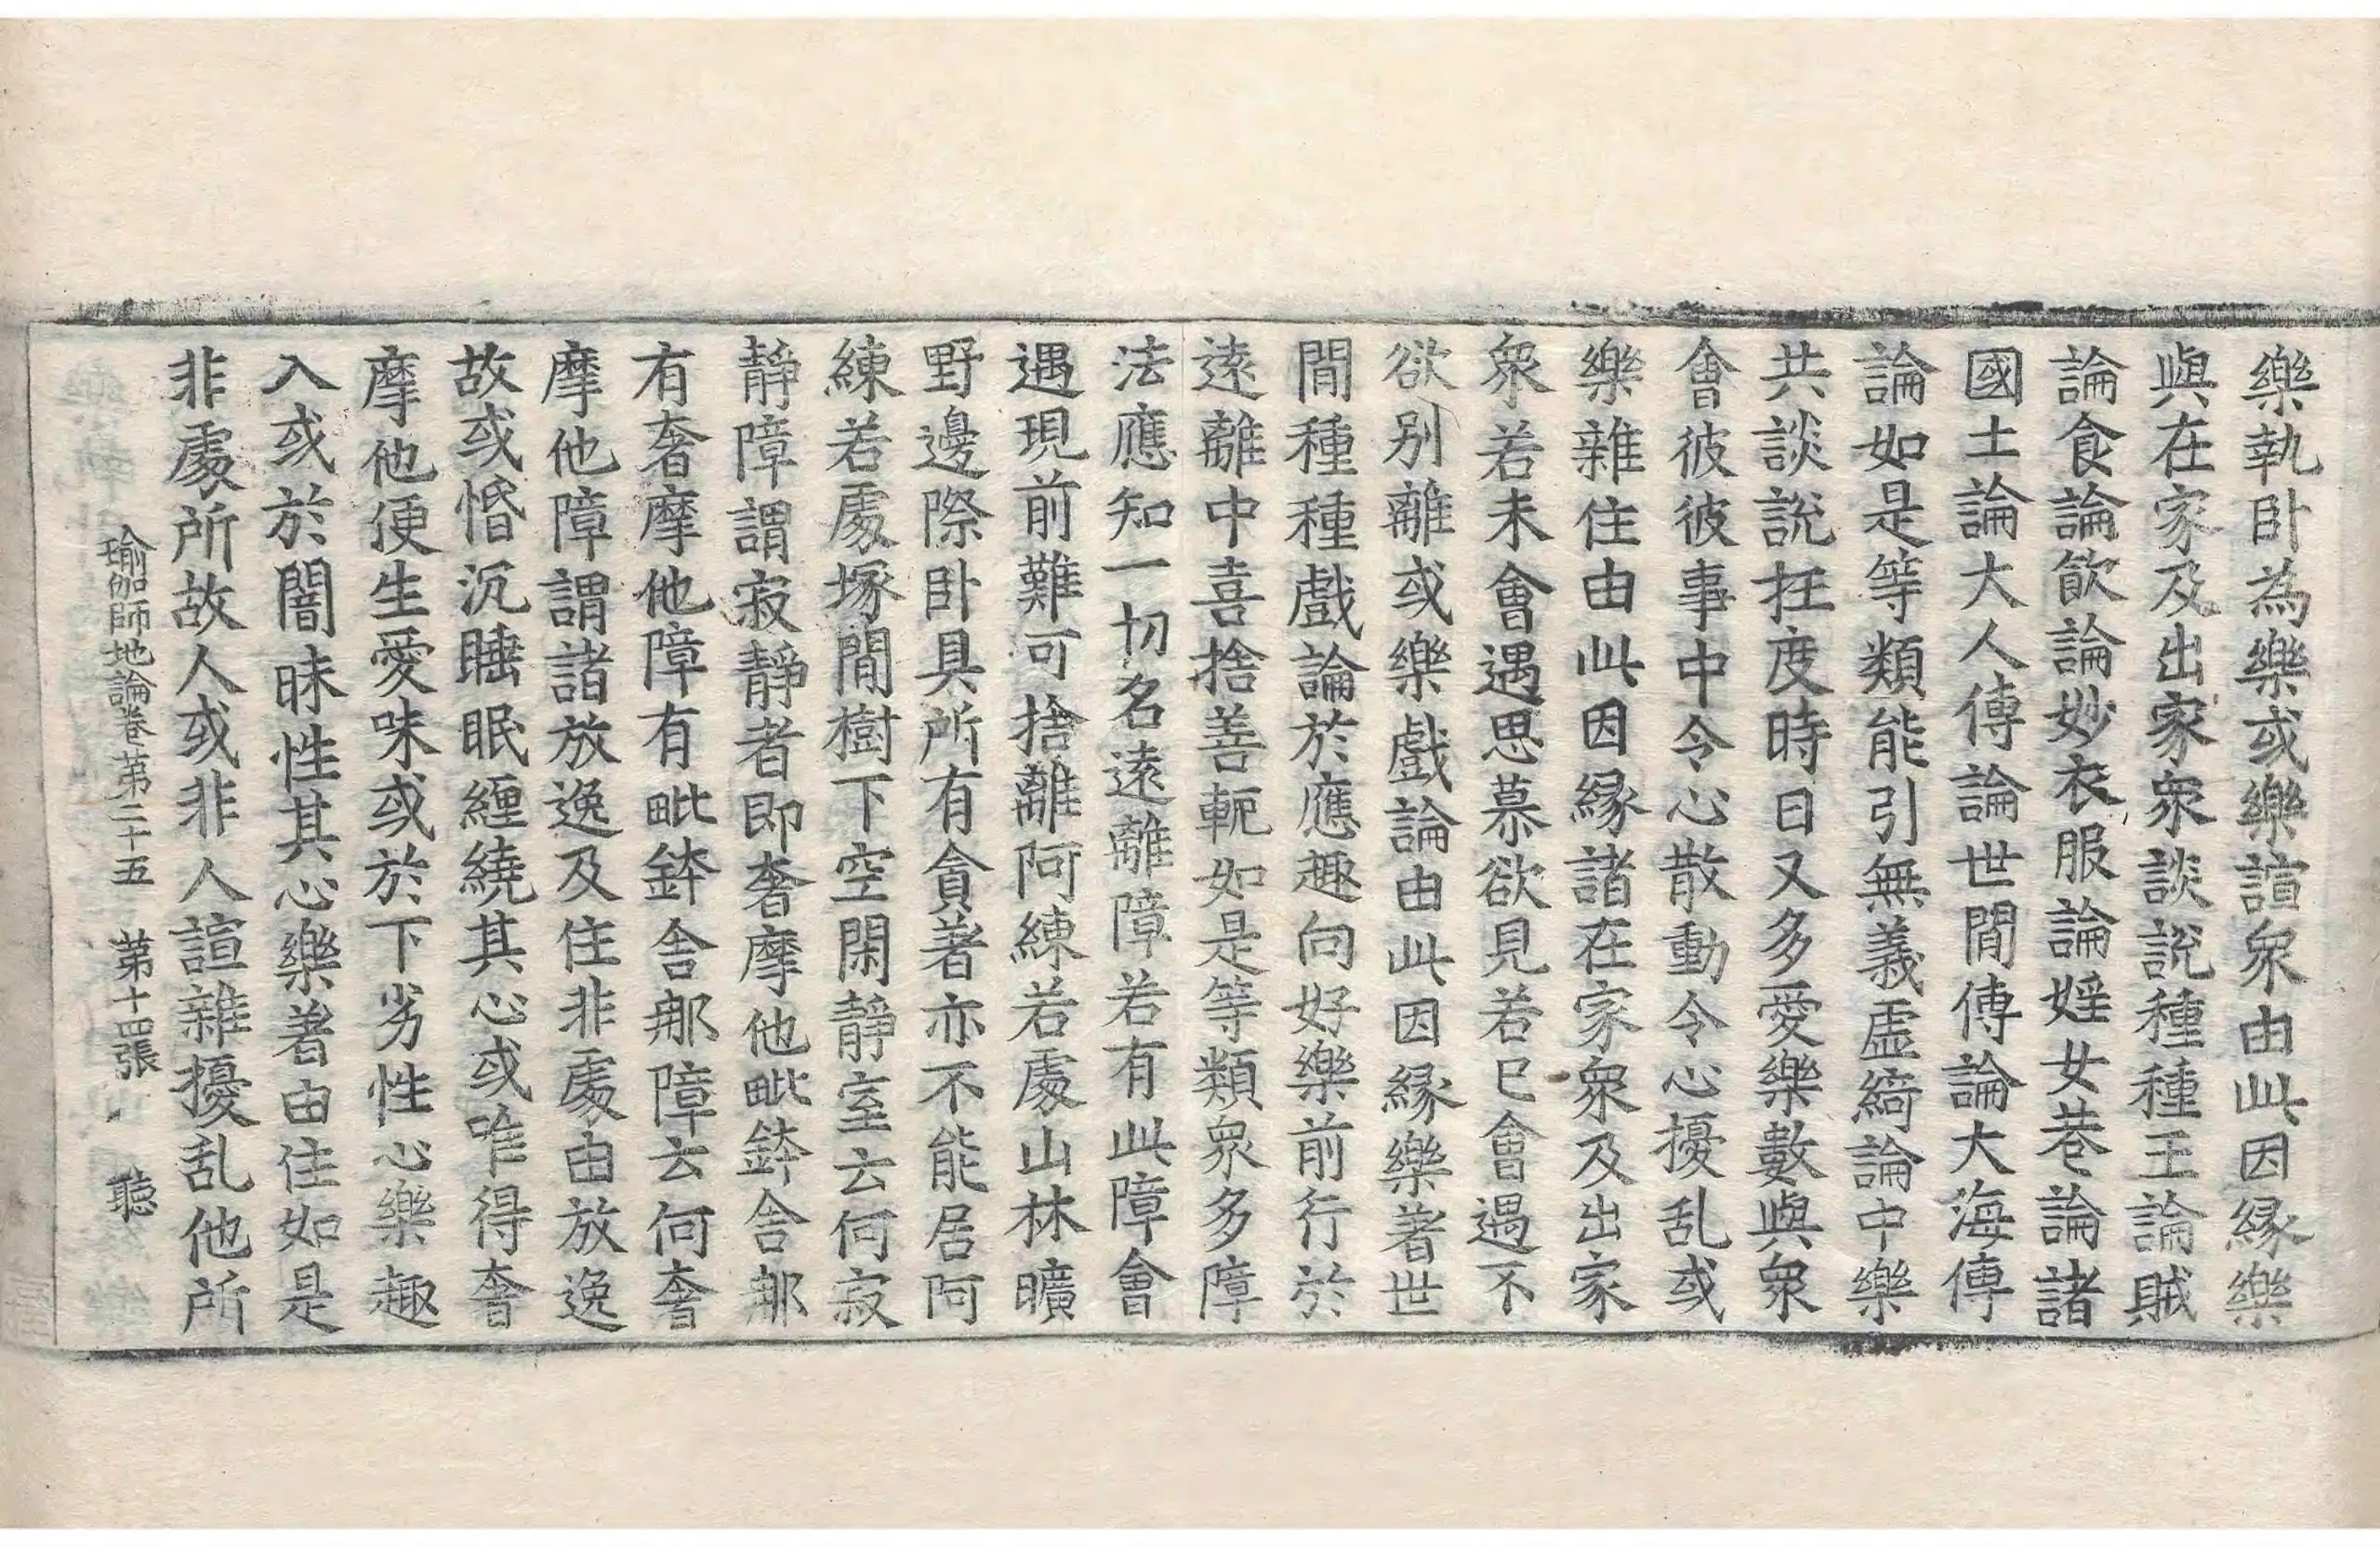 樂執卧為樂或樂諠衆由此因緣樂
與在家及出家衆談說種種王論賊
論食論飲論妙衣服論婬女巷論諸
國土論大人傳論世間傳論大海傳
論如是等類能引無義虛綺論中樂
共談說抂度時日又多愛樂數與衆
會彼彼事中令心散動令心擾乱或
樂雜住由此因緣諸在家衆及出家
衆若未會遇思慕欲見若已會遇不
欲别離或樂戲論由此因緣樂著世
間種種戲論於應趣向好樂前行於
遠離中喜捨善軛如是等類衆多障
法應知一切名遠離障若有此障會
遇現前難可捨離阿練若處山林曠
野邊際卧具所有貪著亦不能居阿
練若處塚間樹下空閑靜室云何寂
靜障謂寂靜者即奢摩他毗鉢舍那
有奢摩他障有毗鉢舍那障云何奢
摩他障謂諸放逸及住非處由放逸
故或惛沉睡眠纏繞其心或唯得奢
摩他便生愛味或於下劣性心樂趣
入或於闇昧性其心樂著由住如是
非處所故人或非人諠雜擾乱他所
瑜伽師地論卷第二十五 第十四張 聽